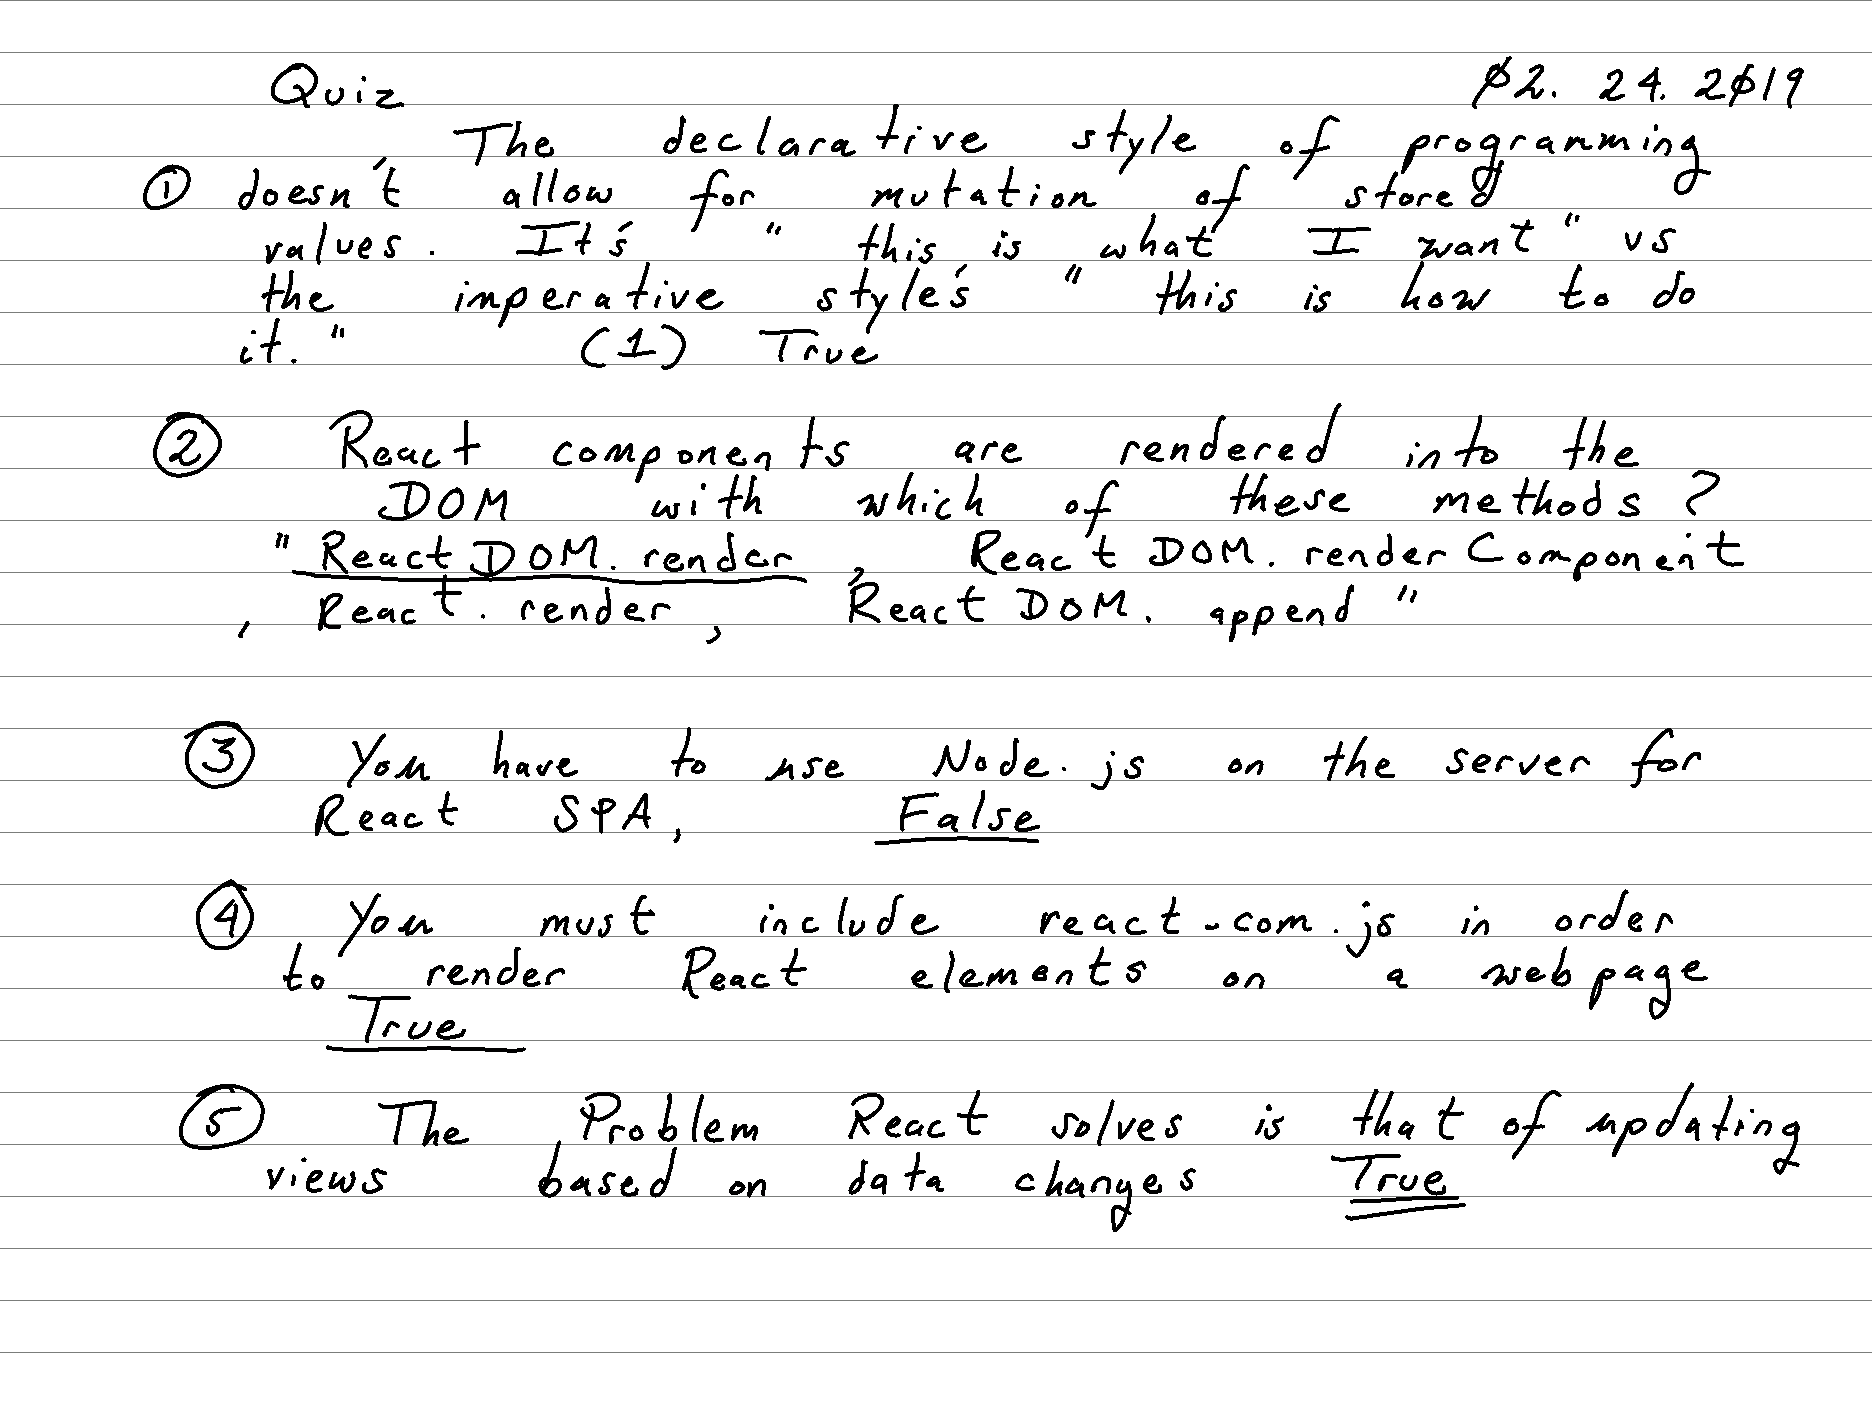 Quiz 02. 24. 2019
The declarative style of programming
① doesn't allow for mutation of stored
values. It's " this is what I want " vs
the imperative style's " this is how to do
it. " (1) True
② React components are rendered into the
DOM with which of these methods ?
" ReactDOM. render , ReactDOM. renderComponent
, React. render , ReactDOM. append "
③ You have to use Node. js on the server for
React SPA, False
④ You must include react-com.js in order
to render React elements on a web page
True
⑤ The Problem React solves is that of updating
views based on data changes True